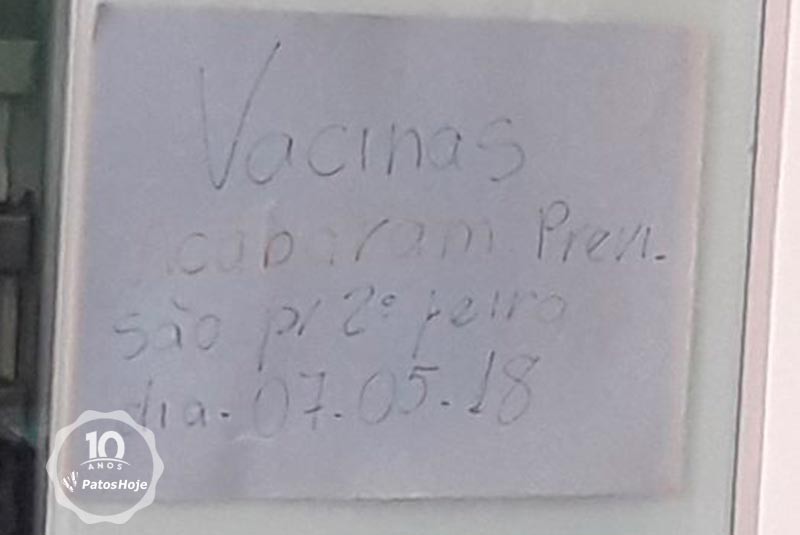 Vacinas
Acabaram Previ-
são p/ 2º feira
dia. 07.05.18
10
ANOS
PatosHoje